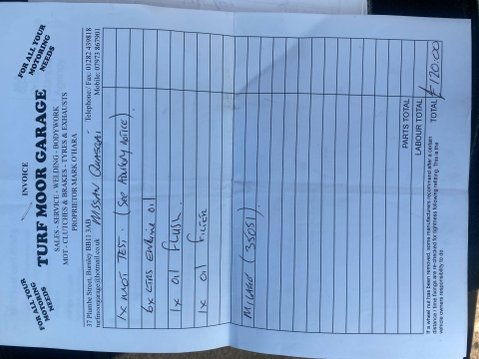 INVOICE
FOR ALL YOUR
MOTORING
NEEDS
TURF MOOR GARAGE
FOR ALL YOUR
MOTORING
NEEDS
SALES - SERVICE - WELDING - BODYWORK
MOT - CLUTCHES & BRAKES - TYRES & EXHAUSTS
PROPRIETOR MARK O'HARA
37 Plumbe Street, Burnley BB11 3AB
Telephone/ Fax: 01282 439818
turfmoorgarage@hotmail.co.uk
Mobile: 07973 867901
NISSAN QUASQAI
1x MOT TEST. (SEE ADVISORY NOTICE)
6x LTRS ENGINE OIL
1x OIL FLUSH.
1x OIL FILTER
MILEAGE (35051)
PARTS TOTAL
LABOUR TOTAL
TOTAL £120.00
If a wheel nut has been removed, some manufacturers recommend after a certain
distance / time fixings are re-checked for tightness following refitting. This is the
vehicle owners responsibility to do.